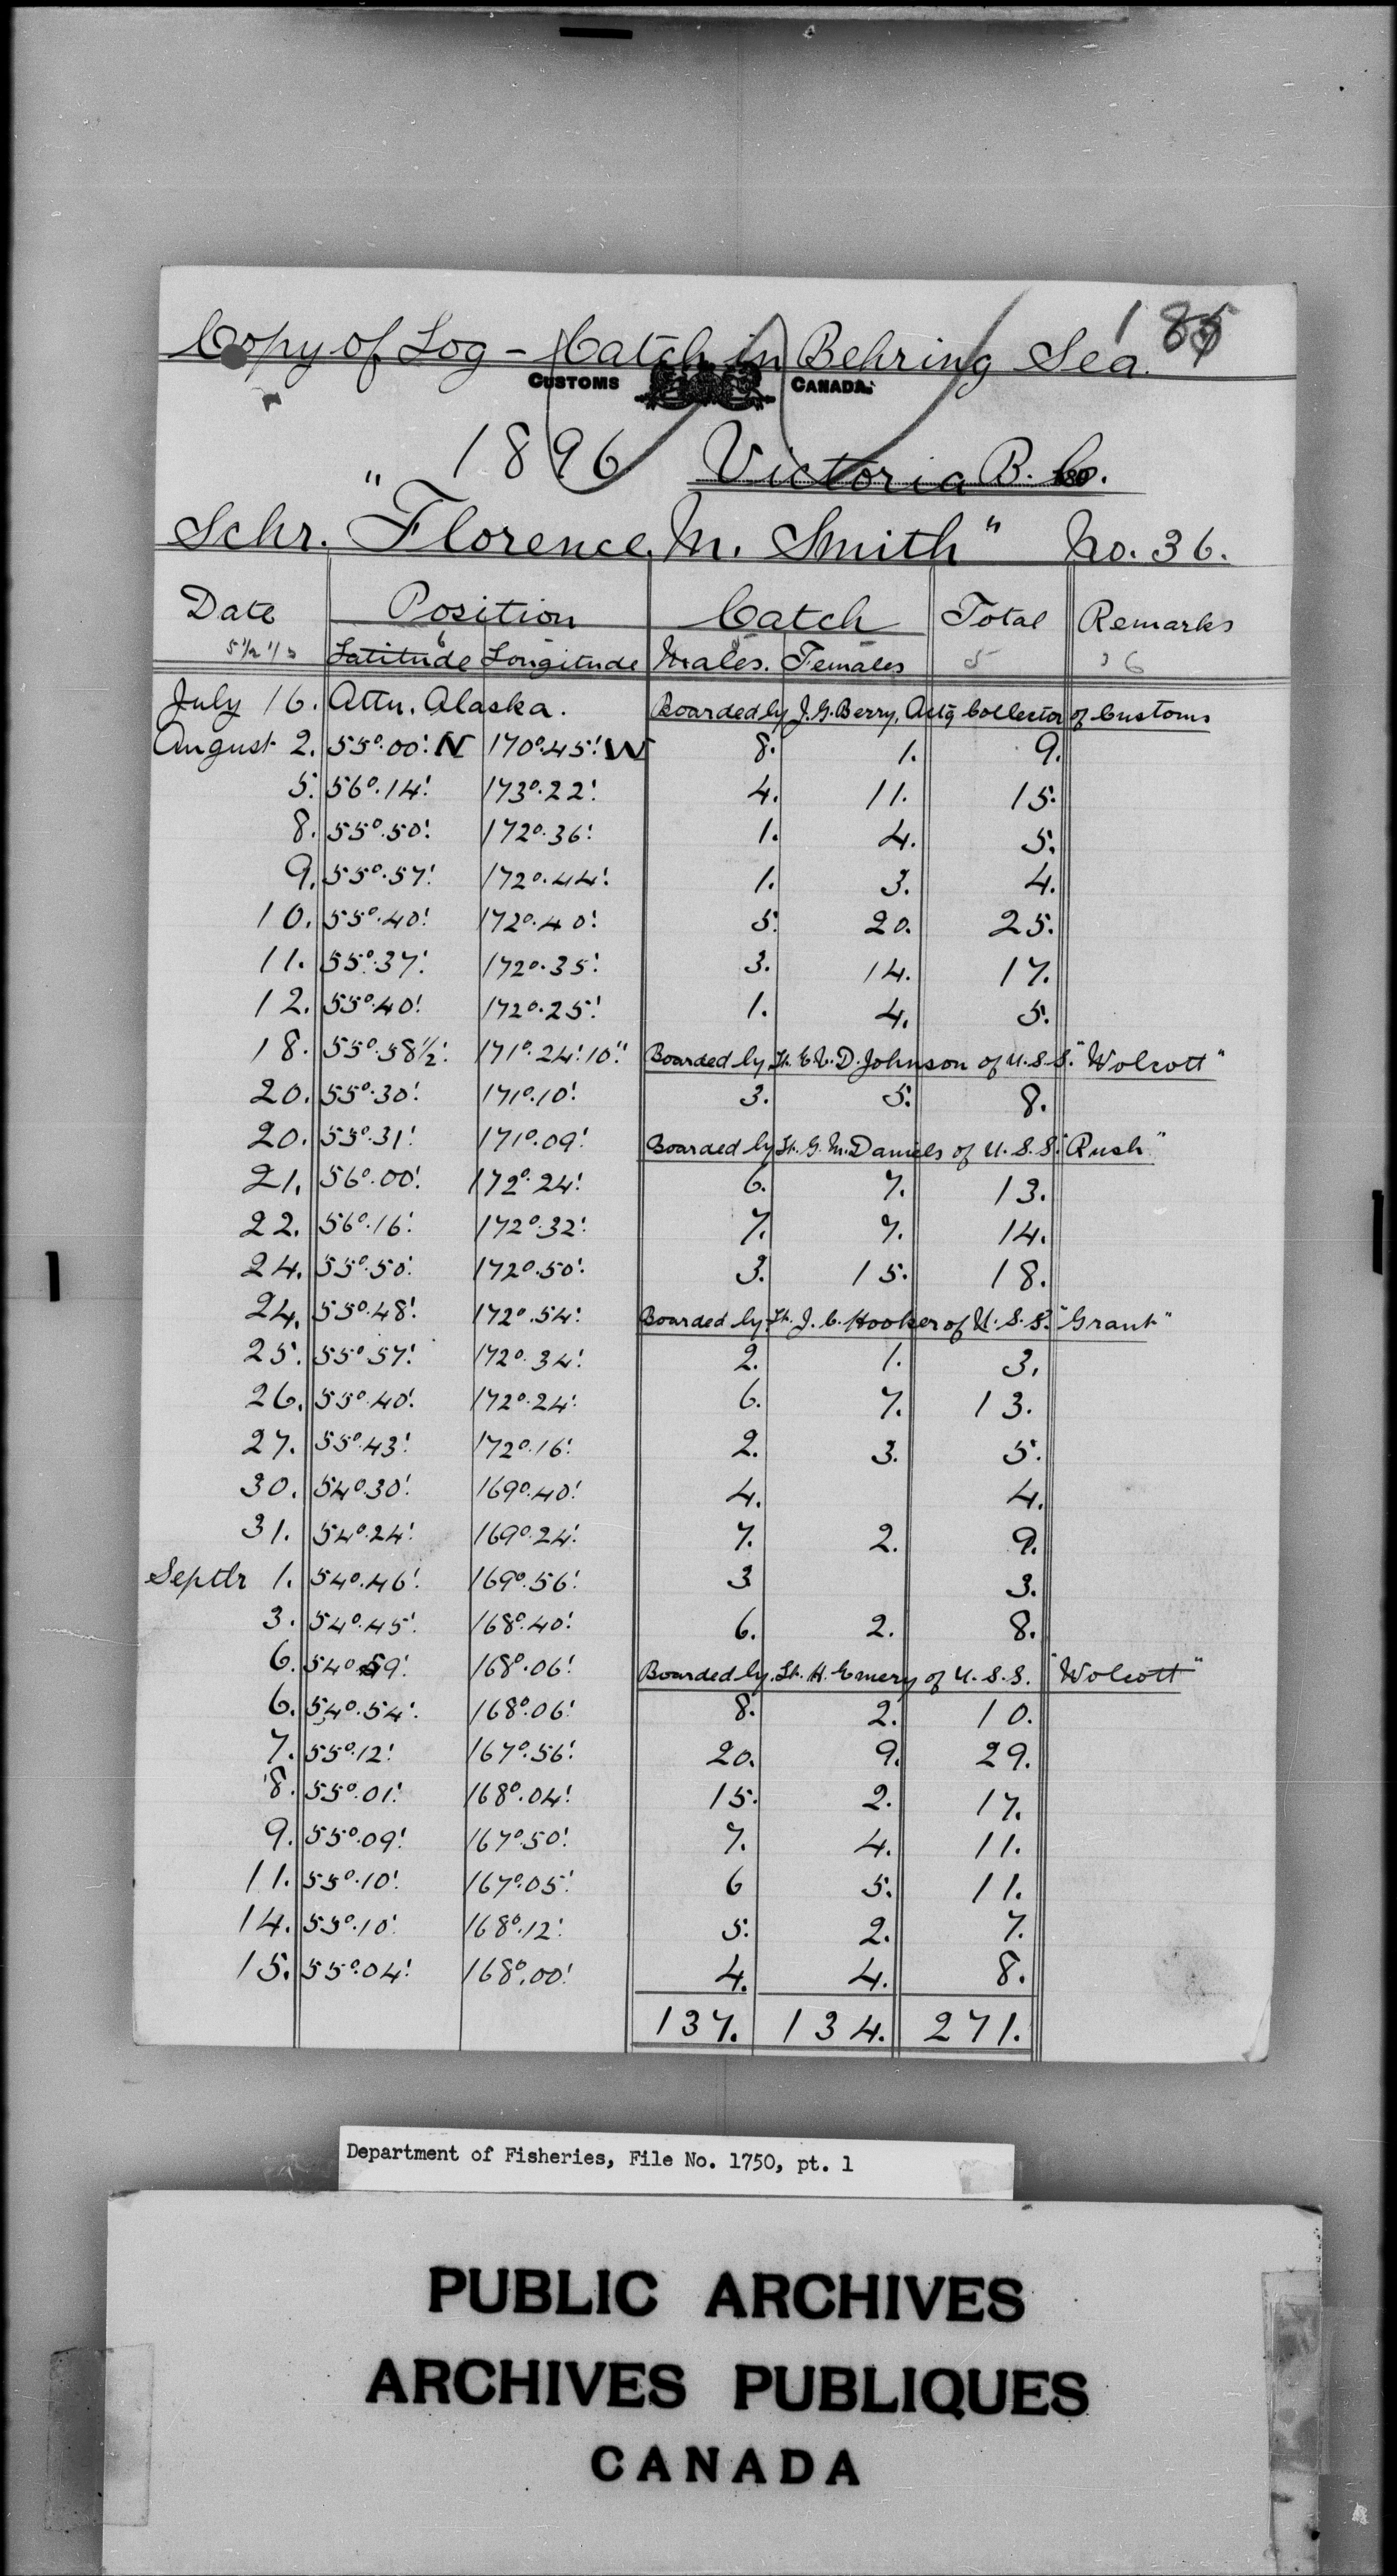 185
Copy of Log - Catch in Behring Sea
CUSTOMS CANADA.
1896 Victoria B.C.
Schr. "Florence M. Smith" No. 36.
Date Position Catch Total Remarks
Latitude Longitude Males. Females
July 16. Attu. Alaska. Boarded by J.G. Berry, Actg Collector of Customs
August 2. 55°.00' N 170°.45' W 8. 1. 9.
5. 56°.14' 173°.22' 4. 11. 15.
8. 55°.50' 172°.36' 1. 4. 5.
9. 55°.57' 172°.44' 1. 3. 4.
10. 55°.40' 172°.40' 5. 20. 25.
11. 55°.37' 172°.35' 3. 14. 17.
12. 55°.40' 172°.25' 1. 4. 5.
18. 55°.58½' 171°.24'.10" Boarded by Lt. E.V.D. Johnson of U.S.S. "Wolcott"
20. 55°.30' 171°.10' 3. 5. 8.
20. 55°.31' 171°.09' Boarded by Lt. G. M. Daniels of U.S.S. "Rush"
21. 56°.00' 172°.24' 6. 7. 13.
22. 56°.16' 172°.32' 7. 7. 14.
24. 55°.50' 172°.50' 3. 15. 18.
24. 55°.48' 172°.54' Boarded by Lt. J.C. Hooker of U.S.S. "Grant"
25. 55°.57' 172°.34' 2. 1. 3.
26. 55°.40' 172°.24' 6. 7. 13.
27. 55°.43' 172°.16' 2. 3. 5.
30. 54°.30' 169°.40' 4. 4.
31. 54°.24' 169°.24' 7. 2. 9.
Septbr 1. 54°.46' 169°.56' 3 3.
3. 54°.45' 168°.40' 6. 2. 8.
6. 54°.59' 168°.06' Boarded by Lt. H. Emery of U.S.S. "Wolcott"
6. 54°.54' 168°.06' 8. 2. 10.
7. 55°.12' 167°.56' 20. 9. 29.
8. 55°.01' 168°.04' 15. 2. 17.
9. 55°.09' 167°.50' 7. 4. 11.
11. 55°.10' 167°.05' 6 5. 11.
14. 55°.10' 168°.12' 5. 2. 7.
15. 55°.04' 168°.00' 4. 4. 8.
137. 134. 271.
Department of Fisheries, File No. 1750, pt. 1
PUBLIC ARCHIVES
ARCHIVES PUBLIQUES
CANADA